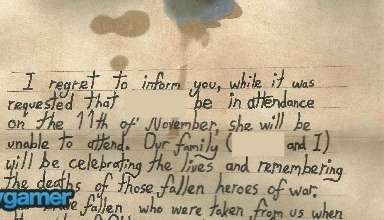 I regret to inform you, while it was
requested that be in attendance
on the 11th of November, she will be
unable to attend. Our family ( and I)
will be celebrating the lives and remembering
the deaths of those fallen heroes of war.
ygamer fallen who were taken from us when